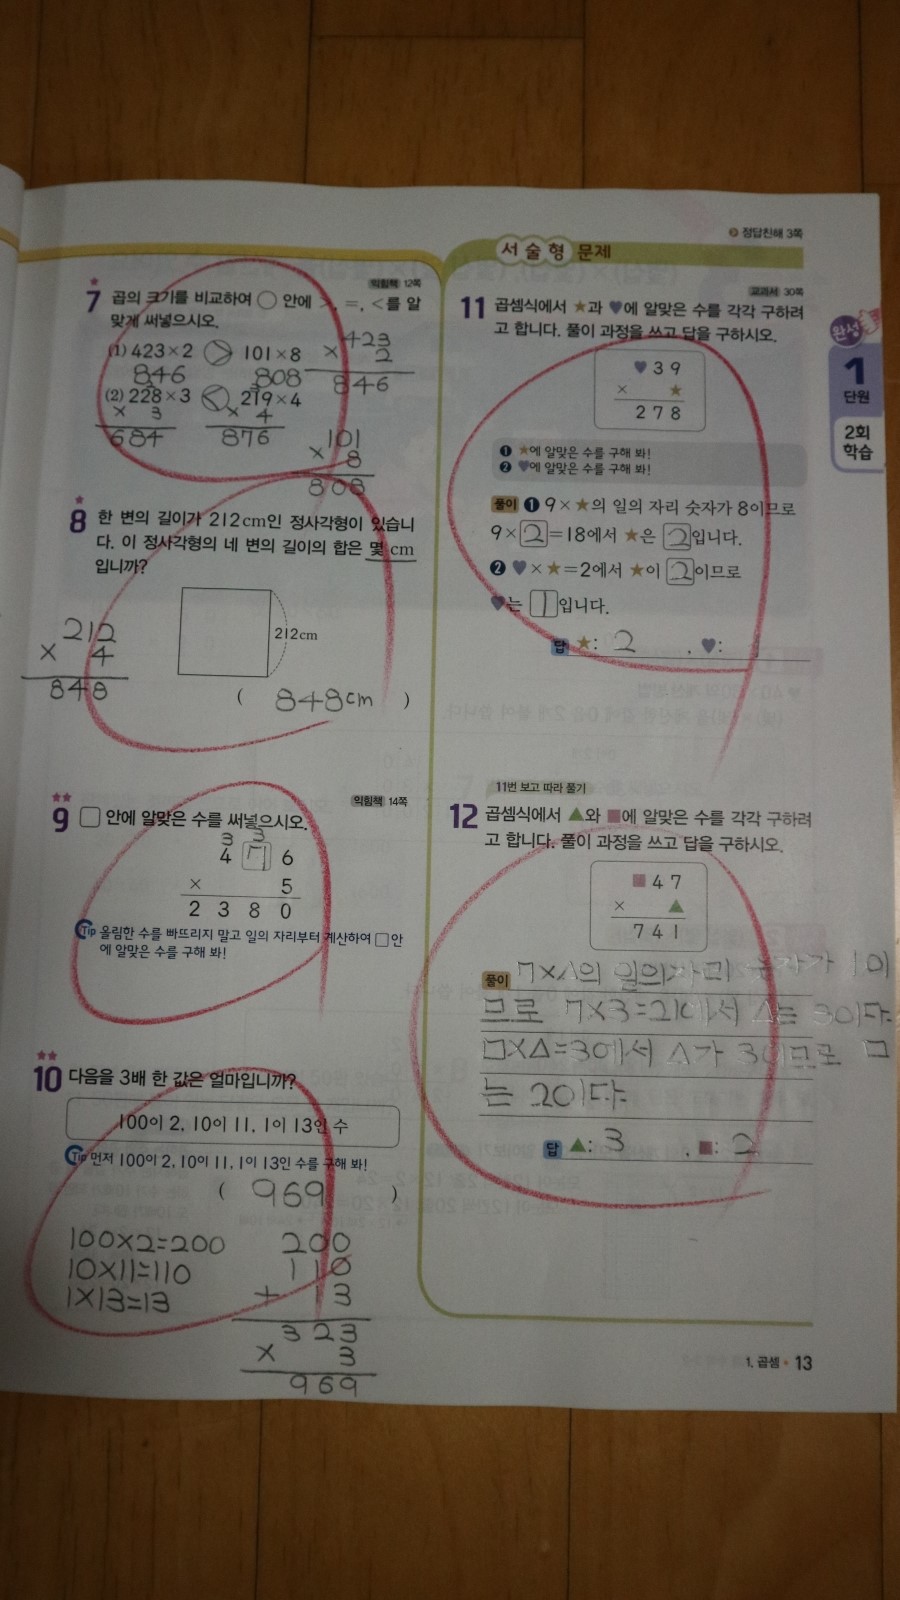 정답친해 3쪽
익힘책 12쪽
7 곱의 크기를 비교하여 ○ 안에 >, =, <를 알
맞게 써넣으시오.
(1) 423×2 > 101×8
846 808
423
× 2
846
(2) 228×3 < 219×4
2 3
× 3 × 4
684 876
101
× 8
808
8 한 변의 길이가 212cm인 정사각형이 있습니
다. 이 정사각형의 네 변의 길이의 합은 몇 cm
입니까?
212cm
212
× 4
848
( 848cm )
익힘책 14쪽
9 □ 안에 알맞은 수를 써넣으시오.
3 3
4 7 6
× 5
2 3 8 0
Tip 올림한 수를 빠뜨리지 말고 일의 자리부터 계산하여 □ 안
에 알맞은 수를 구해 봐!
10 다음을 3배 한 값은 얼마입니까?
100이 2, 10이 11, 1이 13인 수
Tip 먼저 100이 2, 10이 11, 1이 13인 수를 구해 봐!
( 969 )
100×2=200
10×11=110
1×13=13
200
110
+ 13
323
× 3
969
서술형 문제
교과서 30쪽
11 곱셈식에서 ★과 ♥에 알맞은 수를 각각 구하려
고 합니다. 풀이 과정을 쓰고 답을 구하시오.
♥ 3 9
× ★
2 7 8
❶ ★에 알맞은 수를 구해 봐!
❷ ♥에 알맞은 수를 구해 봐!
풀이 ❶ 9×★의 일의 자리 숫자가 8이므로
9×2=18에서 ★은 2입니다.
❷ ♥×★=2에서 ★이 2이므로
♥는 1입니다.
답 ★: 2 , ♥: 1
11번 보고 따라 풀기
12 곱셈식에서 ▲와 ■에 알맞은 수를 각각 구하려
고 합니다. 풀이 과정을 쓰고 답을 구하시오.
■ 4 7
× ▲
7 4 1
풀이 7×△의 일의자리 숫자가 1이
므로 7×3=21에서 △는 3이다
□×△=3에서 △가 3이므로 □
는 2이다
답 ▲: 3 , ■: 2
완성
1
단원
2회
학습
1. 곱셈 • 13